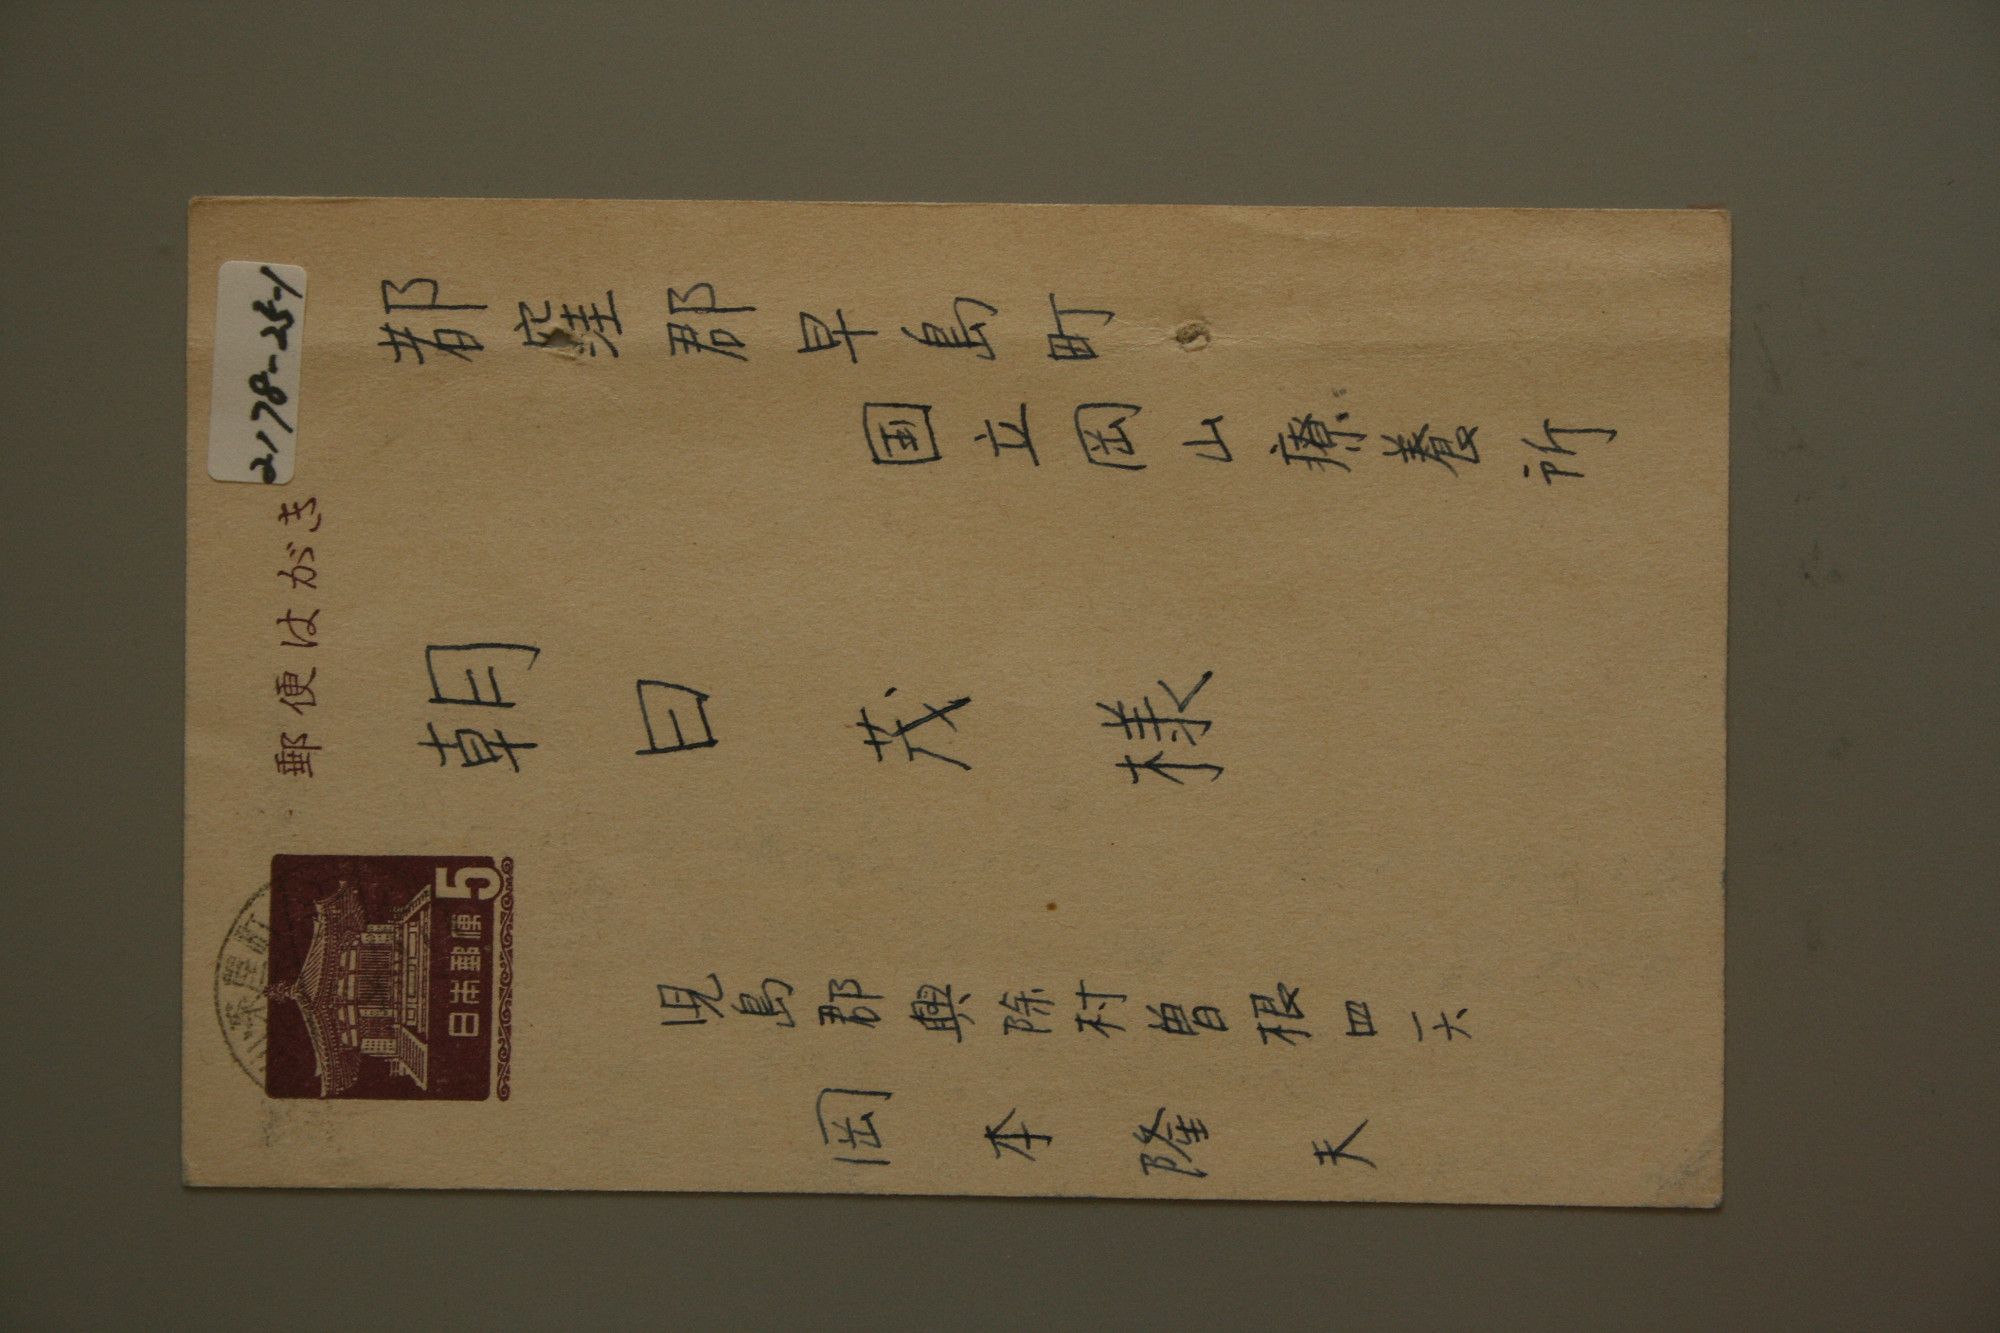 2178-25-1
郵便はがき
都窪郡早島町
国立岡山療養所
朝日茂様
児島郡興除村曽根四一六
岡本隆夫
日本郵便
5